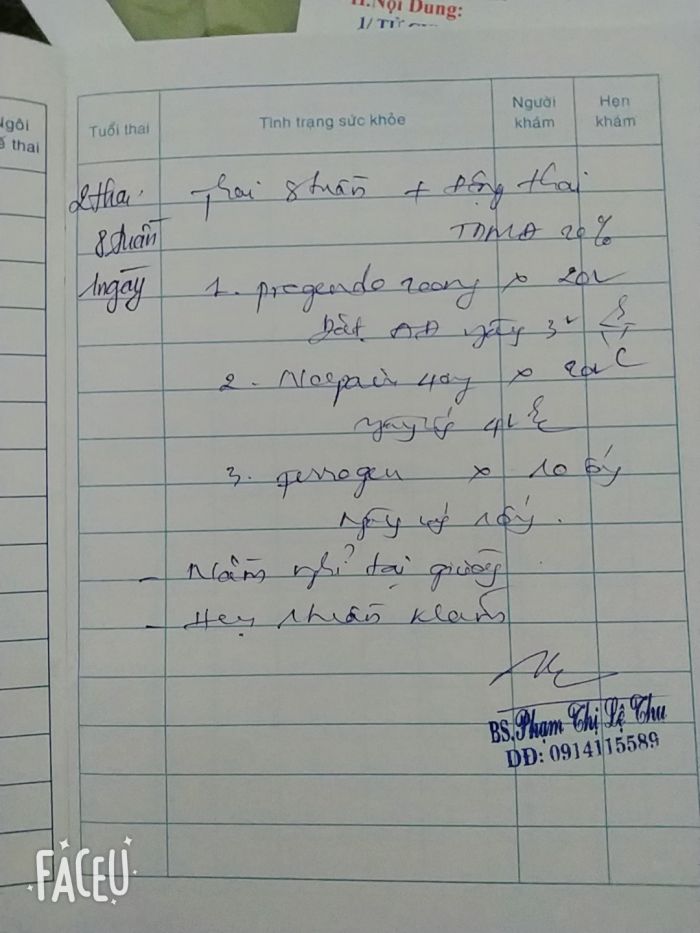 II.Nội Dung:
1/ Từ
Ngôi
thai
Tuổi thai
Tình trạng sức khỏe
Người khám
Hẹn khám
2 thai 8 tuần 1 ngày
Thai 8 tuần + Động thai
20%
1. pregendo 200mg x 20v
Đặt ÂĐ ngày 3v
2. Nospain 40mg x 20v
ngày uống 4v
3. Ferrogen x 10 ống
Ngày uống 1 ống.
- Nằm nghỉ tại giường
- Hẹn 1 tuần khám
BS.Phạm Thị Lệ Thu
DĐ: 0914115589
FACEU